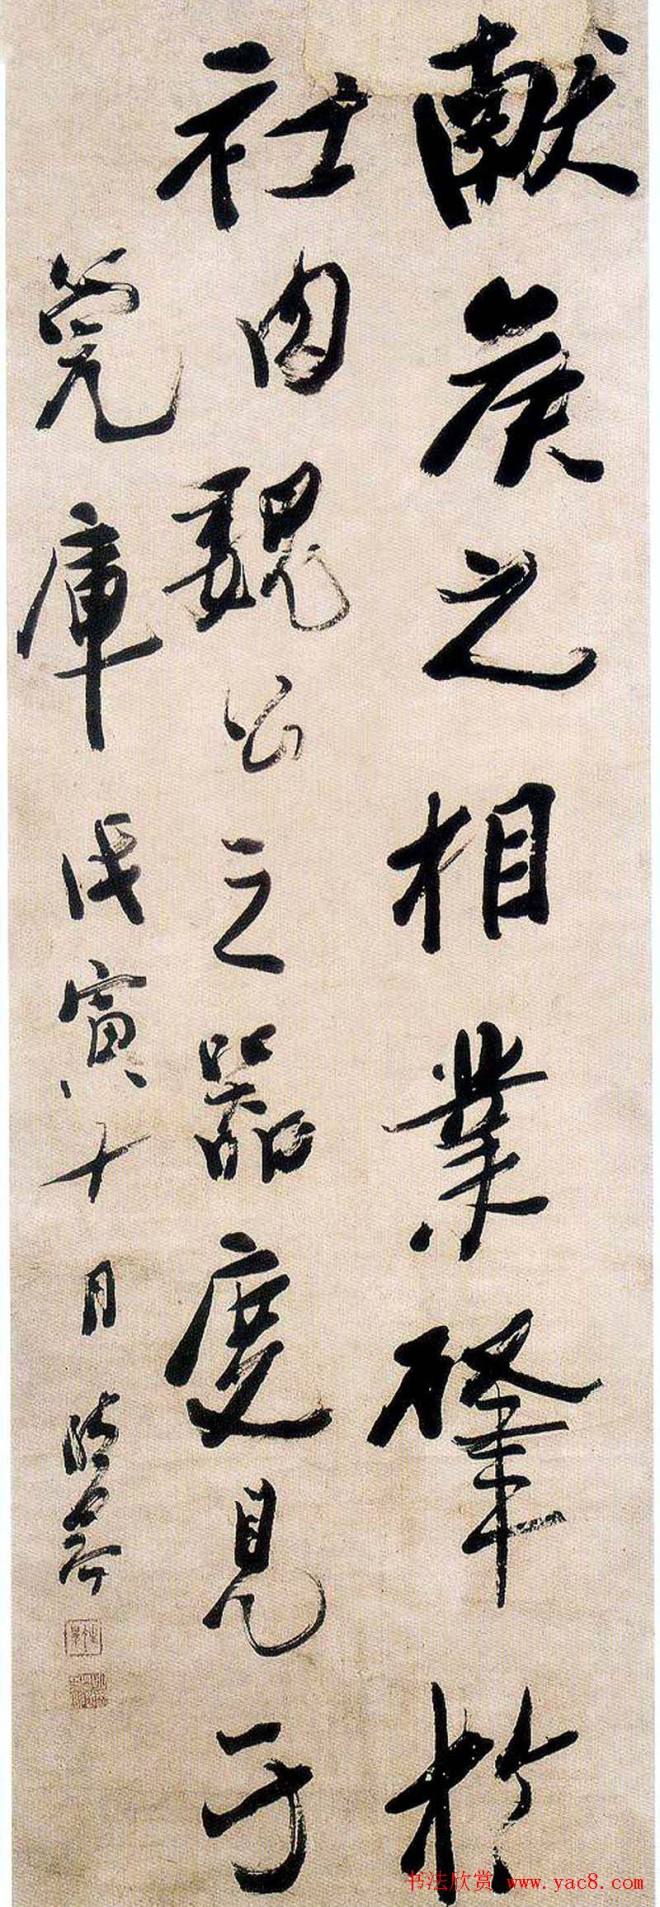 献侯之相業肇於
社肉魏公之器度見于
筦庫戊寅十月
书法欣赏 www.yac8.com